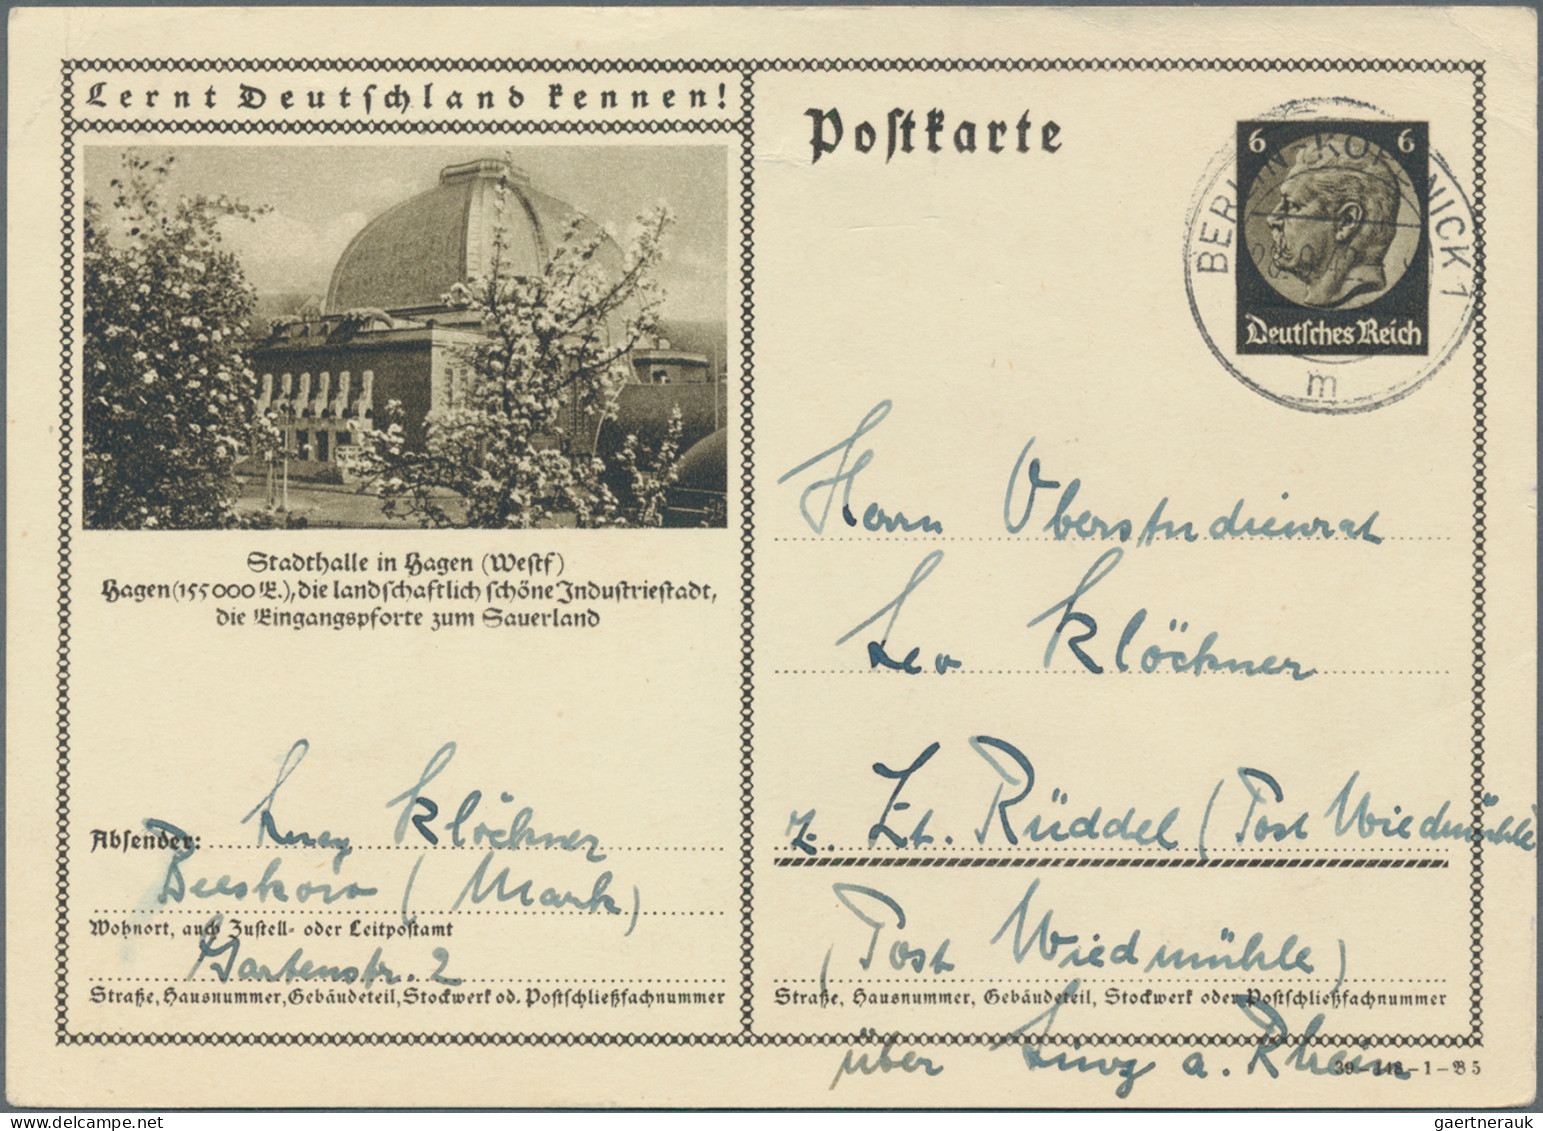 Lernt Deutschland kennen!
Stadthalle in Hagen (Westf)
Hagen (155000 E.), die landschaftlich schöne Industriestadt,
die Eingangspforte zum Sauerland
Absender: Lucy Klöckner
Beeskow (Mark)
Wohnort, auch Zustell- oder Leitpostamt
Gartenstr. 2
Straße, Hausnummer, Gebäudeteil, Stockwerk od. Postschließfachnummer
Postkarte
6 6
Deutsches Reich
BERLIN-KÖPENICK 1
m
Herrn Oberstudienrat
Leo Klöckner
z. Zt. Rüddel (Post Wiedmühle
(Post Wiedmühle)
Straße, Hausnummer, Gebäudeteil, Stockwerk oder Postschließfachnummer
über Linz a. Rhein
39-148-1-B5
gaertnerauk